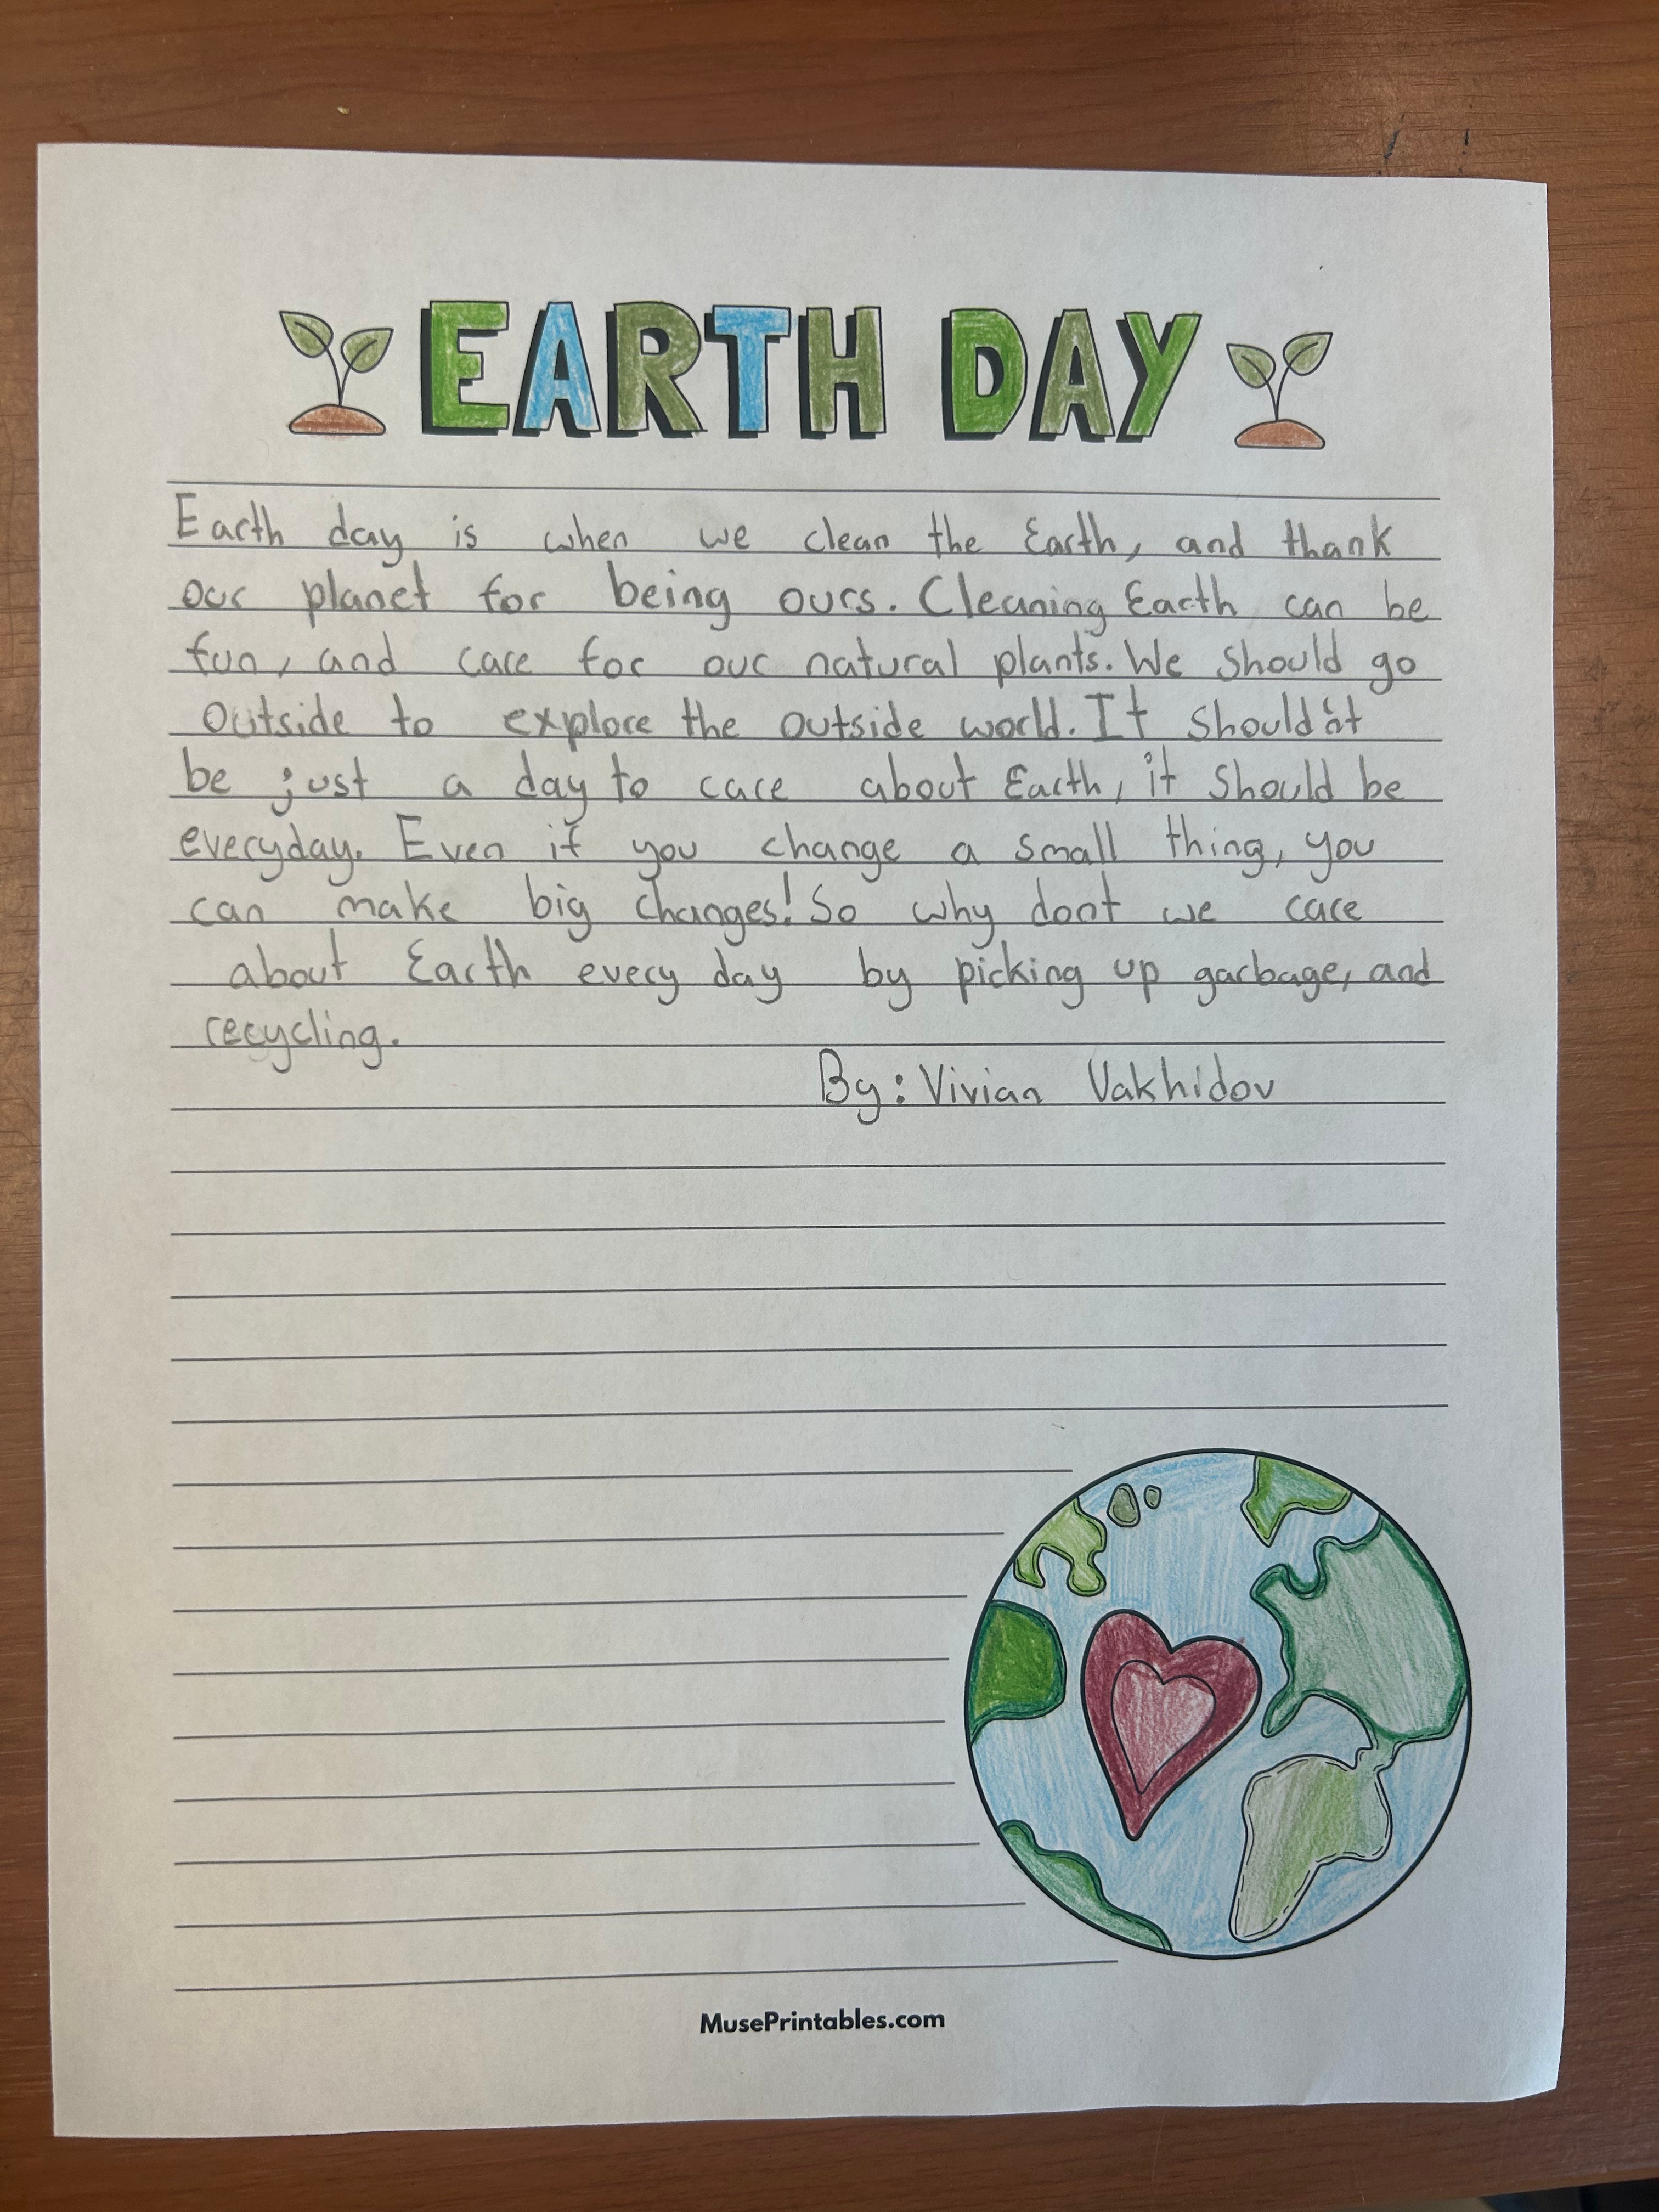 EARTH DAY
Earth day is when we clean the Earth, and thank
our planet for being ours. Cleaning Earth can be
fun, and care for our natural plants. We should go
outside to explore the outside world. It should'nt
be just a day to care about Earth, it should be
everyday. Even if you change a small thing, you
can make big changes! So why dont we care
about Earth every day by picking up garbage, and
recycling.
By: Vivian Vakhidov
MusePrintables.com